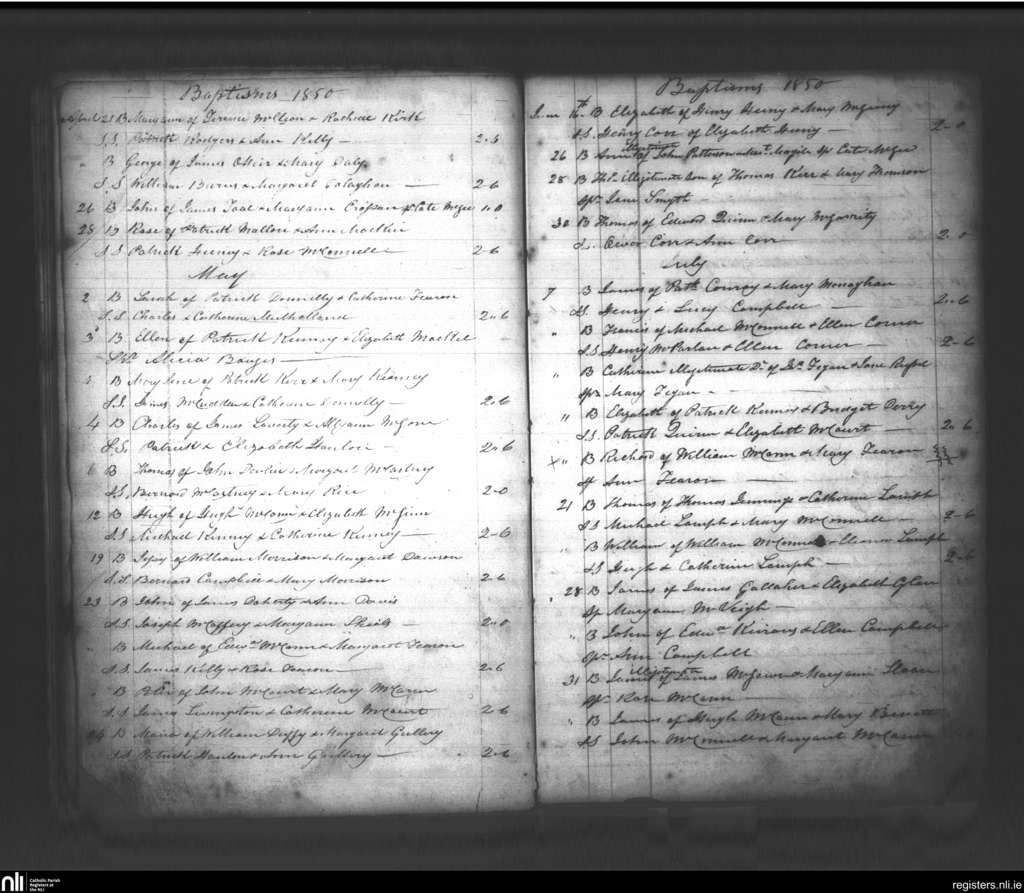 Baptisms 1850
April 21 B Maryann of Terence & Rachell Kirk
S.S Patrick Rodgers & Ann Kelly — 2-6
" B George of James & Mary Daly
S.S William Burns & Margaret — 2-6
26 B John of James Toal & Maryann Sp Cate McGee
28 B Rose of Patrick Mallon & Ann Mackin
S S Patrick Heeney & Rose McConnell 2-6
May
2 B Sarah of Patrick Donnelly & Catherine Fearon
S.S Charles & Catherine Mulholland 2-6
3 B Ellen of Patrick Kinney & Elizabeth Mackel
Alicia —
B Mary of Patrick Kerr & Mary Kearney
S.S. James & Catherine Donnelly — 2-6
4 B Charles of James & McGone
S.S. Patrick & Elizabeth — 2-6
6 B Thomas of John & Margaret McCartney
S.S. Bernard McCartney & Mary Rice 2-0
12 B Hugh of Hugh & Elizabeth
S.S Michael Kinney & Catherine Kinney — 2-6
19 B of William Morrison & Margaret Dawson
S.S. Bernard Campbell & Mary Morrison 2-6
23 B John of James Doherty & Ann Davis
S.S Joseph McCaffery & Maryann — 2-0
" B Michael of Edwd McCann & Margaret Fearon
S.S James Kelly & Rose Fearon — 2-6
" B Peter of John McCourt & Mary McCann
S S James Livingston & Catherine McCourt 2-6
B Maria of William Duffy & Margaret Gullery
S.S Patrick & Ann Gullery — 2-6
Baptisms 1850
June 16th B Elizabeth of Henry Heeny & Mary
S.S. Henry Corr & Elizabeth — 2-0
26 B of John Patterson & Sp Cate McGee
28 B Thos illegitimate Son of Thomas Kerr & Mary Thomson
Spr Jane Smyth —
30 B Thomas of Edward Quinn & Mary McGarrity
S.S. Owen Corr & Ann Corr 2-0
July
7 B James of Patk Conroy & Mary Monaghan
S.S. Henry & Lucy Campbell — 2-6
" B Francis of Michael McConnell & Ellen Corner
S.S Henry McParlan & Ellen Corner — 2-6
" B Catherine Illegitimate Dr of Jas Fegan & Jane
Spr Mary Fegan —
" B Elizabeth of Patrick & Bridget
S.S Patrick Quinn & Elizabeth McCourt — 2-6
x " B Richard of William McCann & Mary Fearon
Sp Ann Fearon —
21 B Thomas of Thomas Jennings & Catherine Lamph
S S Michael Lamph & Mary McConnell — 2-6
B William of William McConnell & Eleanor Lamph
S.S Hugh & Catherine Lamph — 2-6
28 B James of James Gallaher & Elizabeth
Sp Maryann McVeigh —
" B John of Edwd & Ellen Campbell
Spr Ann Campbell
Illegitimate
31 B James of James & Maryann Sloan
Spr Rose McCann —
" B James of Hugh McCann & Mary
S.S John McConnell & Margaret McCann
nli
Catholic Parish
Registers at
the NLI
registers.nli.ie